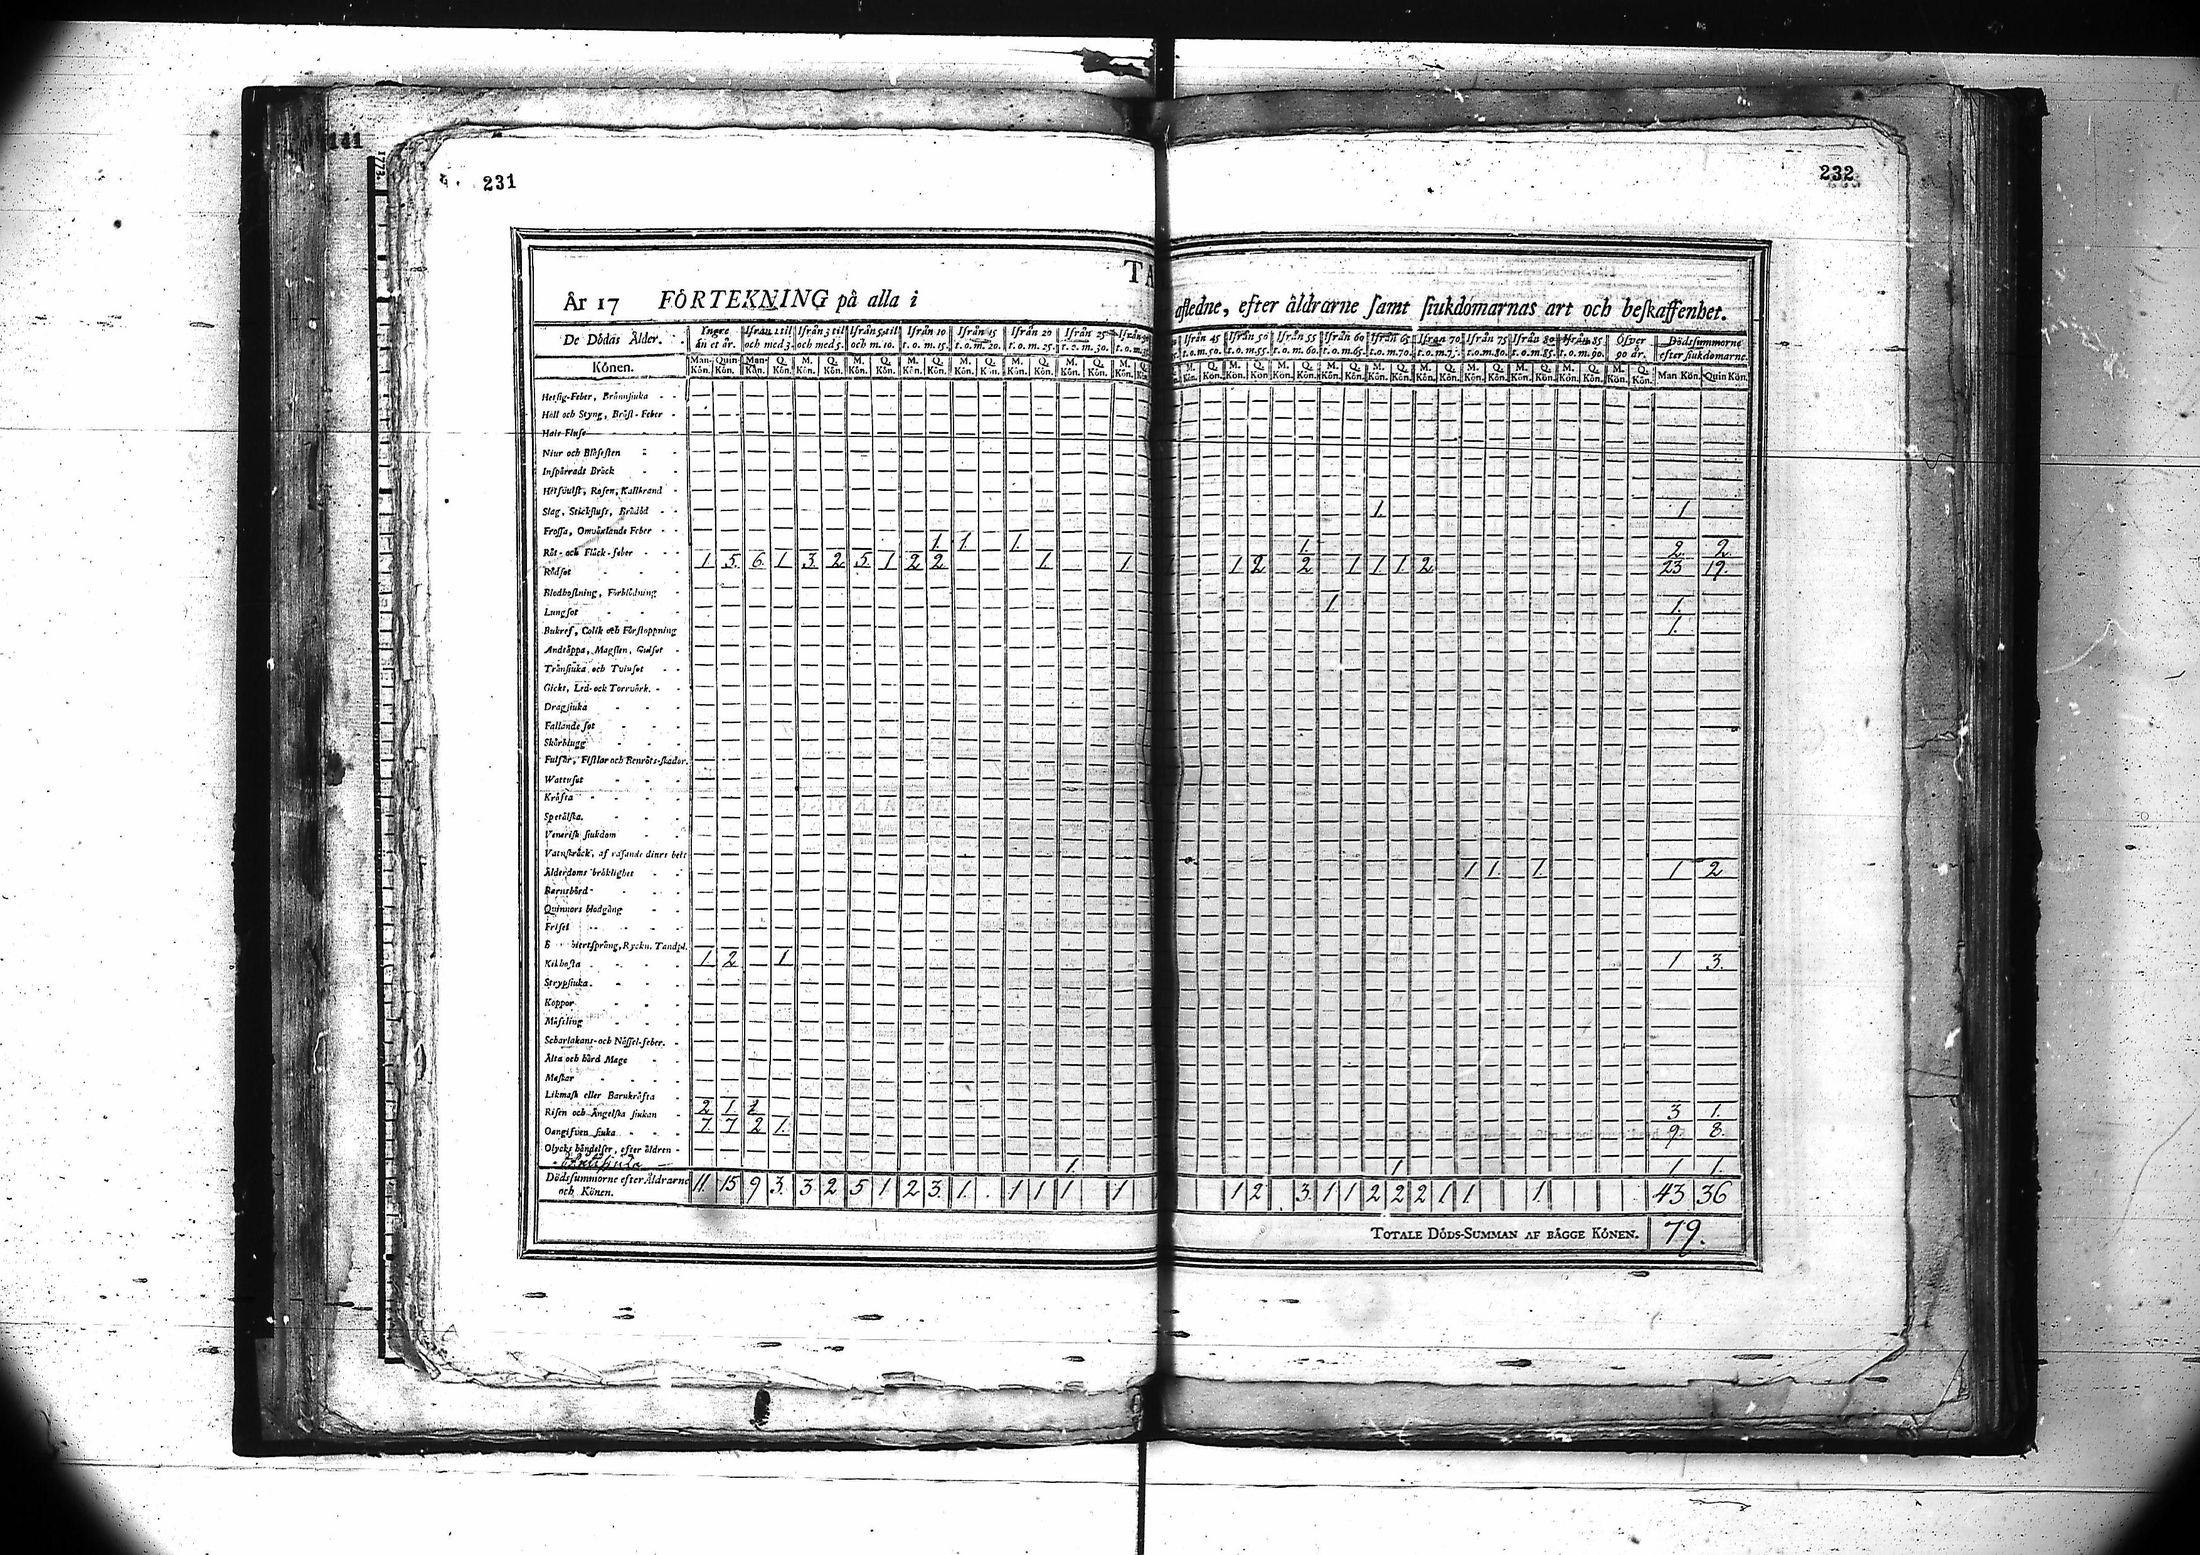 141
1773.
231
232
TA
År 17 FÖRTEKNING på alla i afledne, efter åldrarne samt siukdomarnas art och beskaffenhet.
De Dödas Ålder. Yngre än et år. Ifrån 1 til och med 3. Ifrån 3 til och med 5. Ifrån 5 til och m. 10. Ifrån 10 t. o. m. 15. Ifrån 15 t. o. m. 20. Ifrån 20 t. o. m. 25. Ifrån 25 t. o. m. 30. Ifrån 45 t. o. m. 50. Ifrån 50 t. o. m. 55. Ifrån 55 t. o. m. 60. Ifrån 60 t. o. m. 65. Ifrån 65 t. o. m. 70. Ifrån 70 Ifrån 75 t. o. m. 80. Ifrån 80 t. o. m. 85. Ifrån 85 t. o. m. 90. Öfver 90 år. Dödssummorne efter siukdomarne.
Könen. Man-Kön. Quin-Kön. Man-Kön. Q. Kön. M. Kön. Q. Kön. M. Kön. Q. Kön. M. Kön. Q. Kön. M. Kön. Q. Kön. M. Kön. Q. Kön. M. Kön. Q. Kön. M. Kön. M. Kön. Q. Kön. M. Kön. Q. Kön. M. Kön. Q. Kön. M. Kön. Q. Kön. M. Kön. Q. Kön. M. Kön. Q. Kön. M. Kön. Q. Kön. M. Kön. Q. Kön. M. Kön. Q. Kön. M. Kön. Q. Kön. Man Kön. Quin Kön.
Hetsig-Feber, Brännsiuka
Håll och Styng, Bröst-Feber
Hals-Fluss
Niur och Blåsesten
Inspärradt Bräck
Hetsvulst, Rosen, Kallbrand
Slag, Stickfluss, Brådöd 1. 1
Frossa, Omväxlande Feber
Röt- och Fläck-feber 1 1. 1. 1. 2. 2.
Rödsot 1 5. 6. 1 3. 2 5. 1 2 2 1. 1 1 2 2 1 1. 1. 2 23 19.
Blodhostning, Förblödning
Lungsot 1 1.
Bukref, Colik och Förstoppning 1.
Andtäppa, Magsten, Gulsot
Trånsiuka och Tvinsot
Gickt, Led- ock Torrvärk.
Dragsiuka
Fallande sot
Skörbiugg
Fulsår, Fistlar och Benröts-skador.
Wattusot
Kräfta
Spetälska.
Venerisk siukdom
Vatuskräck, af rasande diurs bett
Ålderdoms bräklighet 1 1. 1. 1 2
Barnsbörd
Quinnors blodgång
Frisel
hiertsprång, Ryckn. Tandpl.
Kikhosta 1 2 1 1 3.
Strypsiuka.
Koppor
Mässling
Scharlakans- och Nässel-feber.
Älta och hård Mage
Maskar
Likmask eller Barnkräfta
Risen och Ängelska siukan 2 1 2 3 1.
Oangifven siuka 7. 7 2 1. 9. 8.
Olycks händelser, efter åldren
1. 1 1 1.
Dödssummorne efter Åldrarne och Könen. 11. 15 9 3. 3 2 5 1 2 3. 1. 1 1 1 1 1 2 3. 1 1 2 2 2 1 1. 1. 43 36
TOTALE DÖDS-SUMMAN AF BÄGGE KÖNEN. 79.